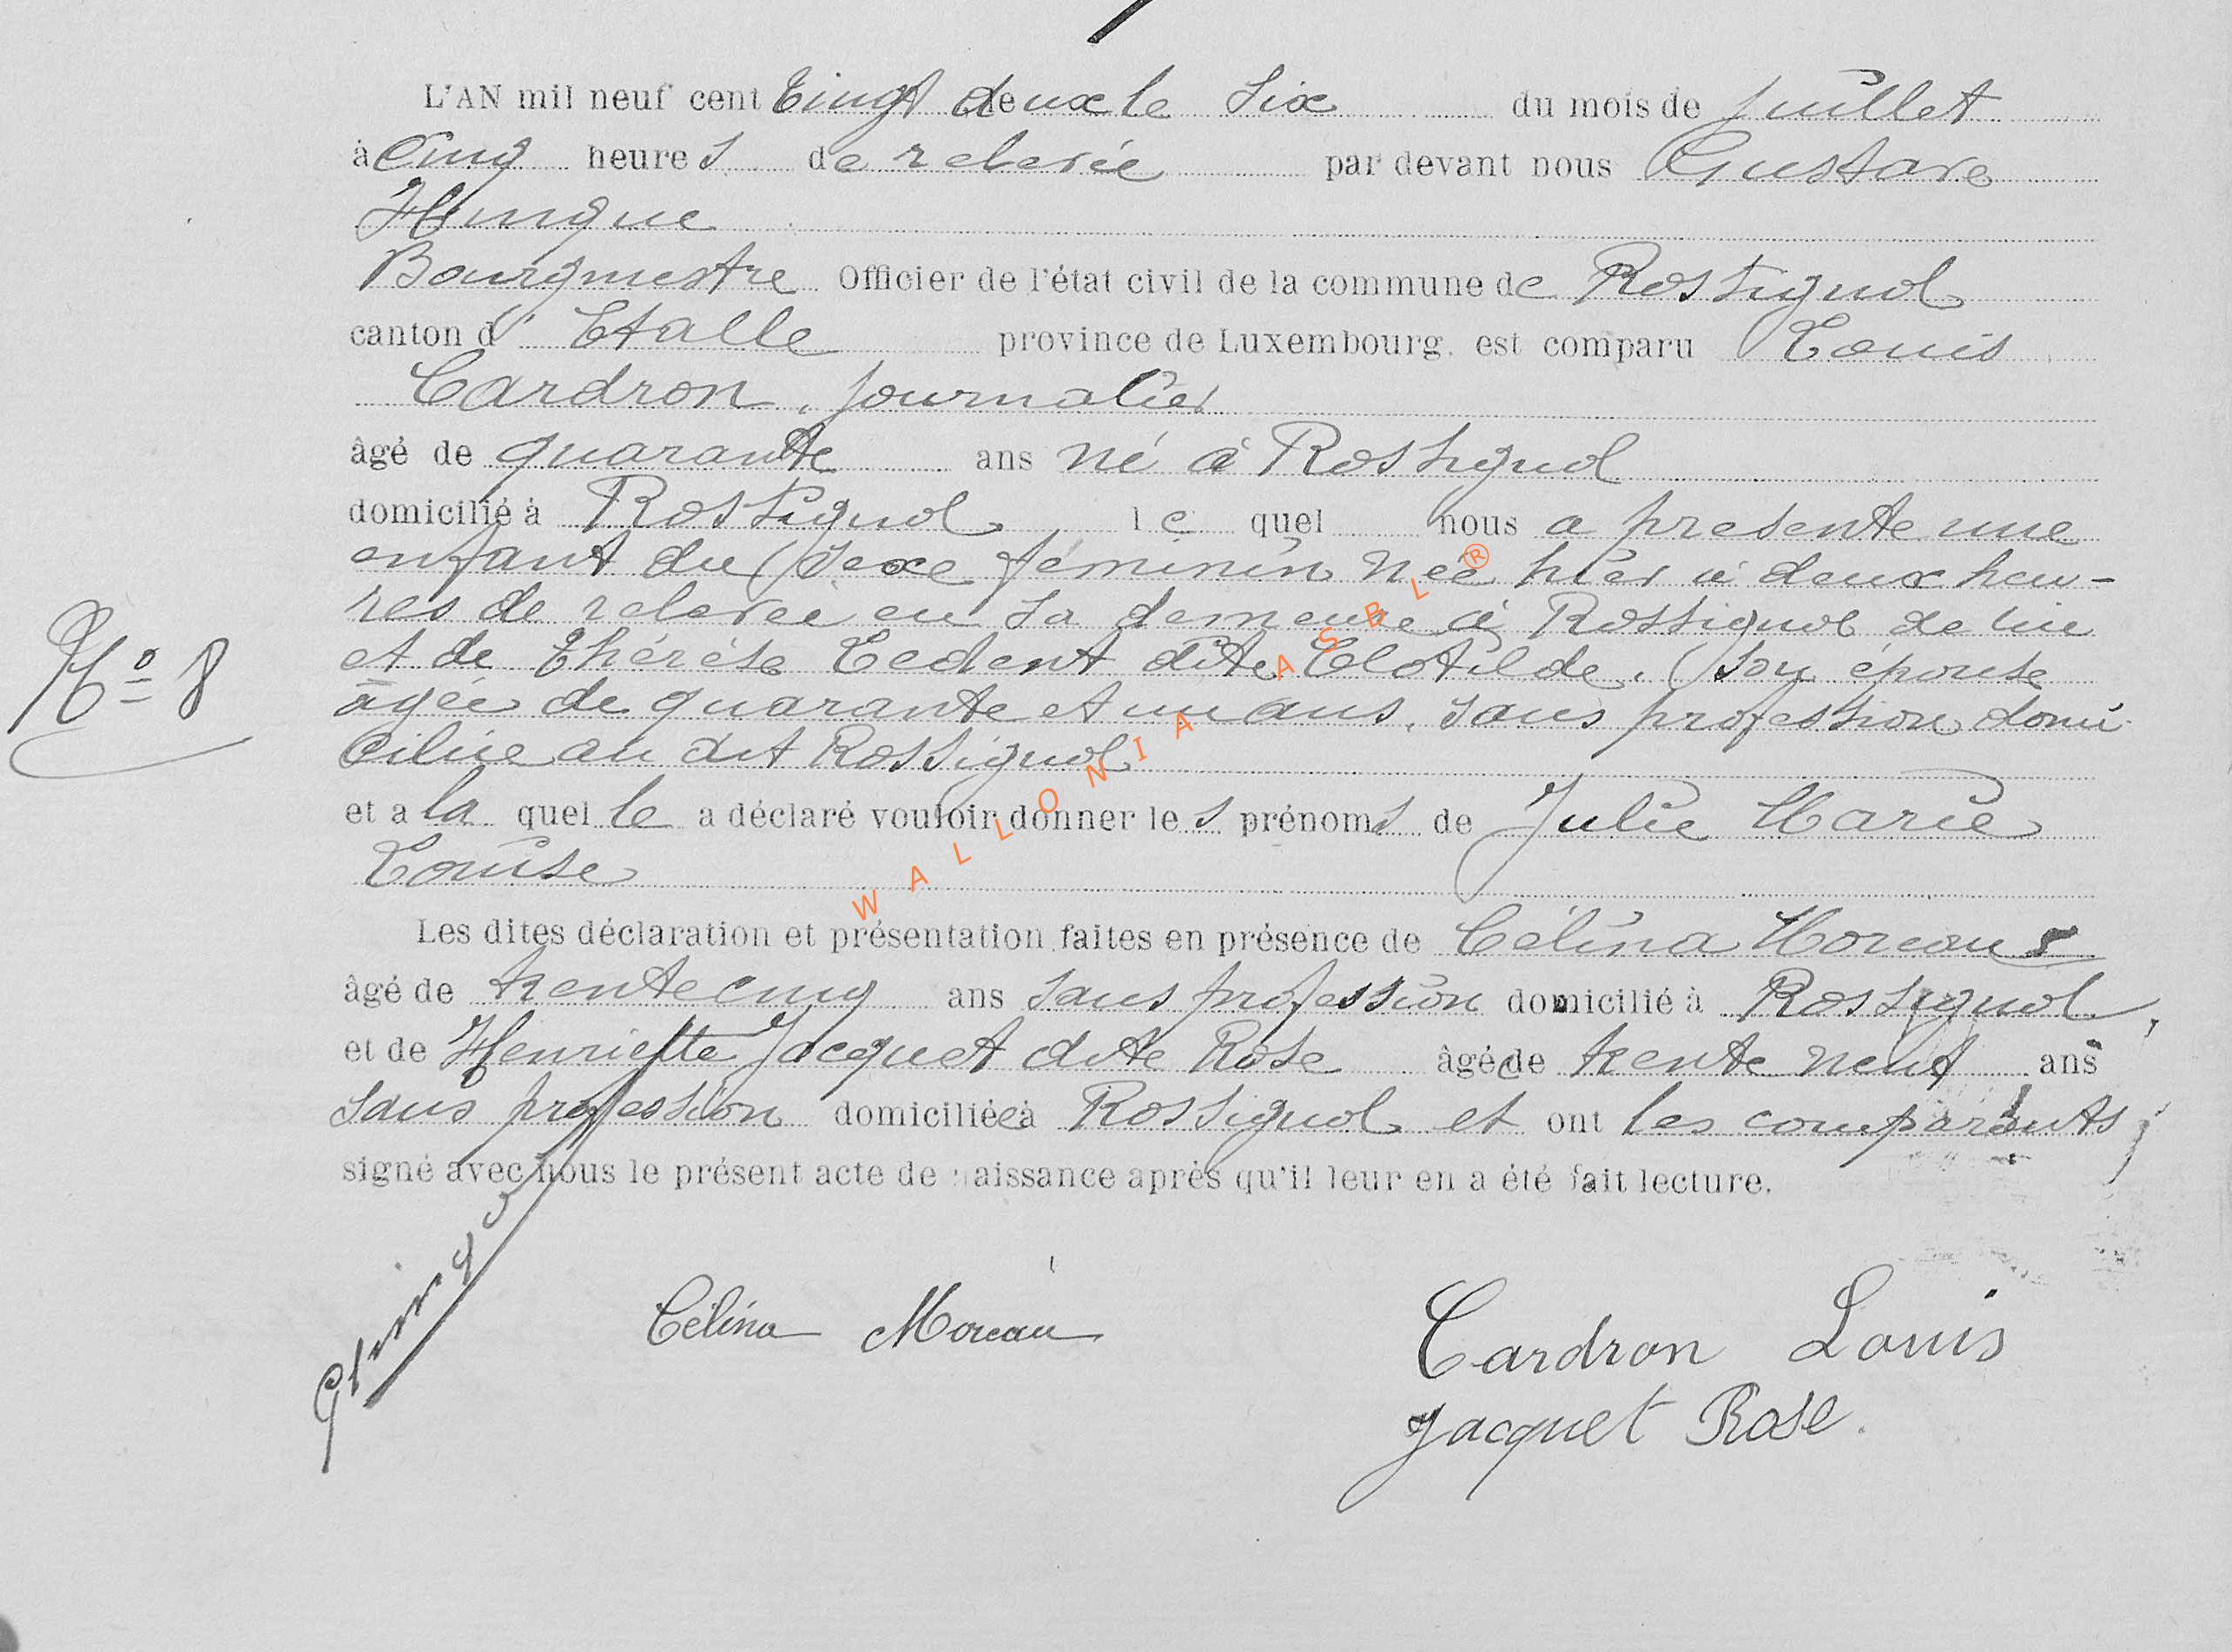 L'AN mil neuf cent vingt deux le six du mois de juillet
à cinq heures de relevée par devant nous Gustave
Hurique
Bourgmestre Officier de l'état civil de la commune de Rossignol
canton d'Etalle province de Luxembourg. est comparu Louis
Cardron, journalier
âgé de quarante ans né à Rossignol
domicilié à Rossignol le quel nous a presente une
enfant du sexe féminin née hier à deux heu-
res de relevée en sa demeure à Rossignol de lui
et de Thérèse Ledent dite Clotilde, son épouse
âgée de quarante et un ans, sans profession domi
ciliée au dit Rossignol
N° 8
et a la quelle a déclaré vouloir donner les prénoms de Julie Marie
Louise
Les dites déclaration et présentation faites en présence de Célina Moreau
âgé de trente cinq ans sans profession domicilié à Rossignol,
et de Henriette Jacquet dite Rose âgée de trente neuf ans
sans profession domiciliée à Rossignol et ont les comparants
signé avec nous le présent acte de naissance après qu'il leur en a été fait lecture.
Célina Moreau
Cardron Louis
Jacquet Rose.
WALLONIA ASBL ®